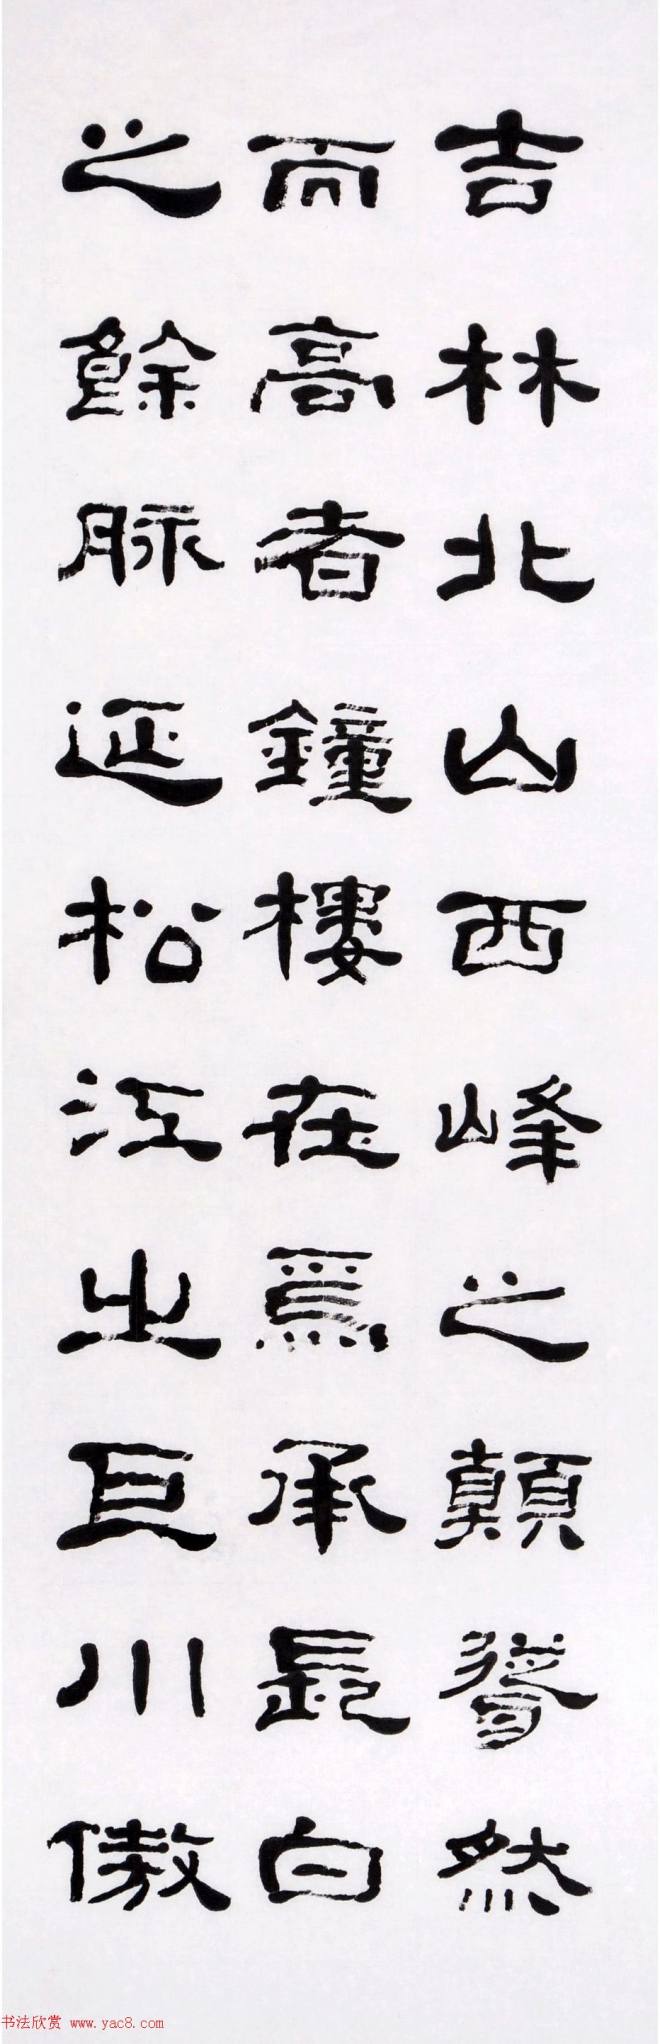 吉林北山西峰之顛聳然
而高者鐘樓在焉承長白
之餘脉延松江出巨川傲
书法欣赏 www.yac8.com